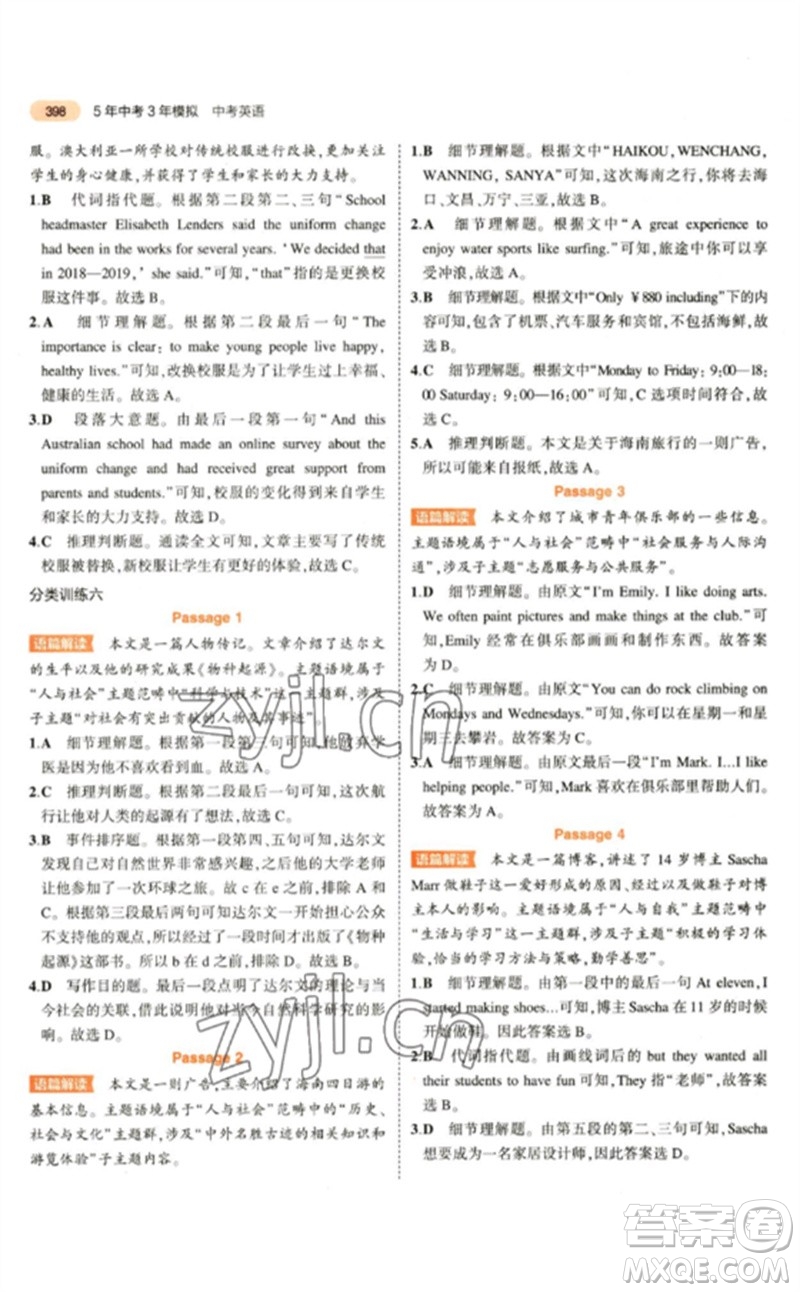 398 5年中考3年模拟 中考英语
服。澳大利亚一所学校对传统校服进行改换,更加关注
学生的身心健康,并获得了学生和家长的大力支持。
1.B 代词指代题。根据第二段第二、三句“School
headmaster Elisabeth Lenders said the uniform change
had been in the works for several years. ‘We decided that
in 2018—2019,’ she said.”可知,“that”指的是更换校
服这件事。故选B。
2.A 细节理解题。根据第二段最后一句“The
importance is clear: to make young people live happy,
healthy lives.”可知,改换校服是为了让学生过上幸福、
健康的生活。故选A。
3.D 段落大意题。由最后一段第一句“And this
Australian school had made an online survey about the
uniform change and had received great support from
parents and students.”可知,校服的变化得到来自学生
和家长的大力支持。故选D。
4.C 推理判断题。通读全文可知,文章主要写了传统
校服被替换,新校服有更好的体验,故选C。
分类训练六
Passage 1
语篇解读 本文是一篇人物传记。文章介绍了达尔文
的生平以及他的研究成果《物种起源》。主题语境属于
“人与社会”主题范畴中“科学与技术”这一主题群,涉及
子主题“对社会有突出贡献的人物及其事迹”。
1.A 细节理解题。根据第一段第三句可知,他放弃学
医是因为他不喜欢看到血。故选A。
2.C 细节理解题。根据第二段最后一句可知,这次航
行让他对人类的起源有了想法,故选C。
3.B 事件排序题。根据第一段第四、五句可知,达尔文
发现自己对自然世界非常感兴趣,之后他的大学老师
让他参加了一次环球之旅。故c在a前,排除A和C。
根据第三段最后两句可知达尔文一开始担心公众
不支持他的观点,所以过了一段时间才出版了《物种
起源》这本书。所以b在d之前,排除D。故选B。
4.D 写作目的题。最后一段写了达尔文的理论与
当今社会的关联,借此说明他对当今自然科学研究的影
响。故选D。
Passage 2
语篇解读 本文是一则广告,主要介绍了海南四日游的
基本信息。主题语境属于“人与社会”范畴中的“历史、
社会与文化”主题群,涉及“中外名胜古迹的相关知识和
游览体验”子主题内容。
1.B 细节理解题。根据文中“HAIKOU, WENCHANG,
WANNING, SANYA”可知,这次海南之行,你将去海
口、文昌、万宁、三亚,故选B。
2.A 细节理解题。根据文中“A great experience to
enjoy water sports like surfing.”可知,旅途中你可以享
受冲浪,故选A。
3.B 细节理解题。根据文中“Only ￥880 including”下的内
容可知,包含了机票、汽车服务和宾馆,不包括海鲜,故
选B。
4.C 细节理解题。根据文中“Monday to Friday: 9:00—18:
00 Saturday: 9:00—16:00”可知,C选项时间符合,故
选C。
5.A 推理判断题。本文是关于海南旅行的一则广告,
所以可能来自报纸,故选A。
Passage 3
语篇解读 本文介绍了城市青年俱乐部的一些信息。
主题语境属于“人与社会”范畴中“社会服务与人际沟
通”,涉及子主题“志愿服务与公共服务”。
1.D 细节理解题。由原文“I'm Emily. I like doing arts.
We often paint pictures and make things at the club.”可
知,Emily经常在俱乐部画画和制作东西。故答案
为D。
2.C 细节理解题。由原文“You can do rock climbing on
Mondays and Wednesdays.”可知,你可以在星期一和星
期三去攀岩。故答案为C。
3.A 细节理解题。由原文“I'm Mark. I...I like
helping people.”可知,Mark喜欢在俱乐部里帮助人们。
故答案为A。
Passage 4
语篇解读 本文是一篇博客,讲述了14岁博主Sascha
Marr做鞋子这一爱好形成的原因、经过以及做鞋子对博
主本人的影响。主题语境属于“人与自我”主题范畴中
“生活与学习”这一主题群,涉及子主题“积极的学习体
验,恰当的学习方法与策略,勤学善思”。
1.B 细节理解题。由第一段中的最后一句At eleven, I
started making shoes...可知,博主Sascha在11岁的时候
开始做鞋。因此答案选B。
2.B 代词指代题。由画线词后的but they wanted all
their students to have fun可知,They指“老师”,故答案
选B。
3.D 细节理解题。由第五段的第二、三句可知,Sascha
想要成为一名家居设计师,因此答案选D。
zyjl.cn
zyjl.cn
答案圈
MXQE.COM